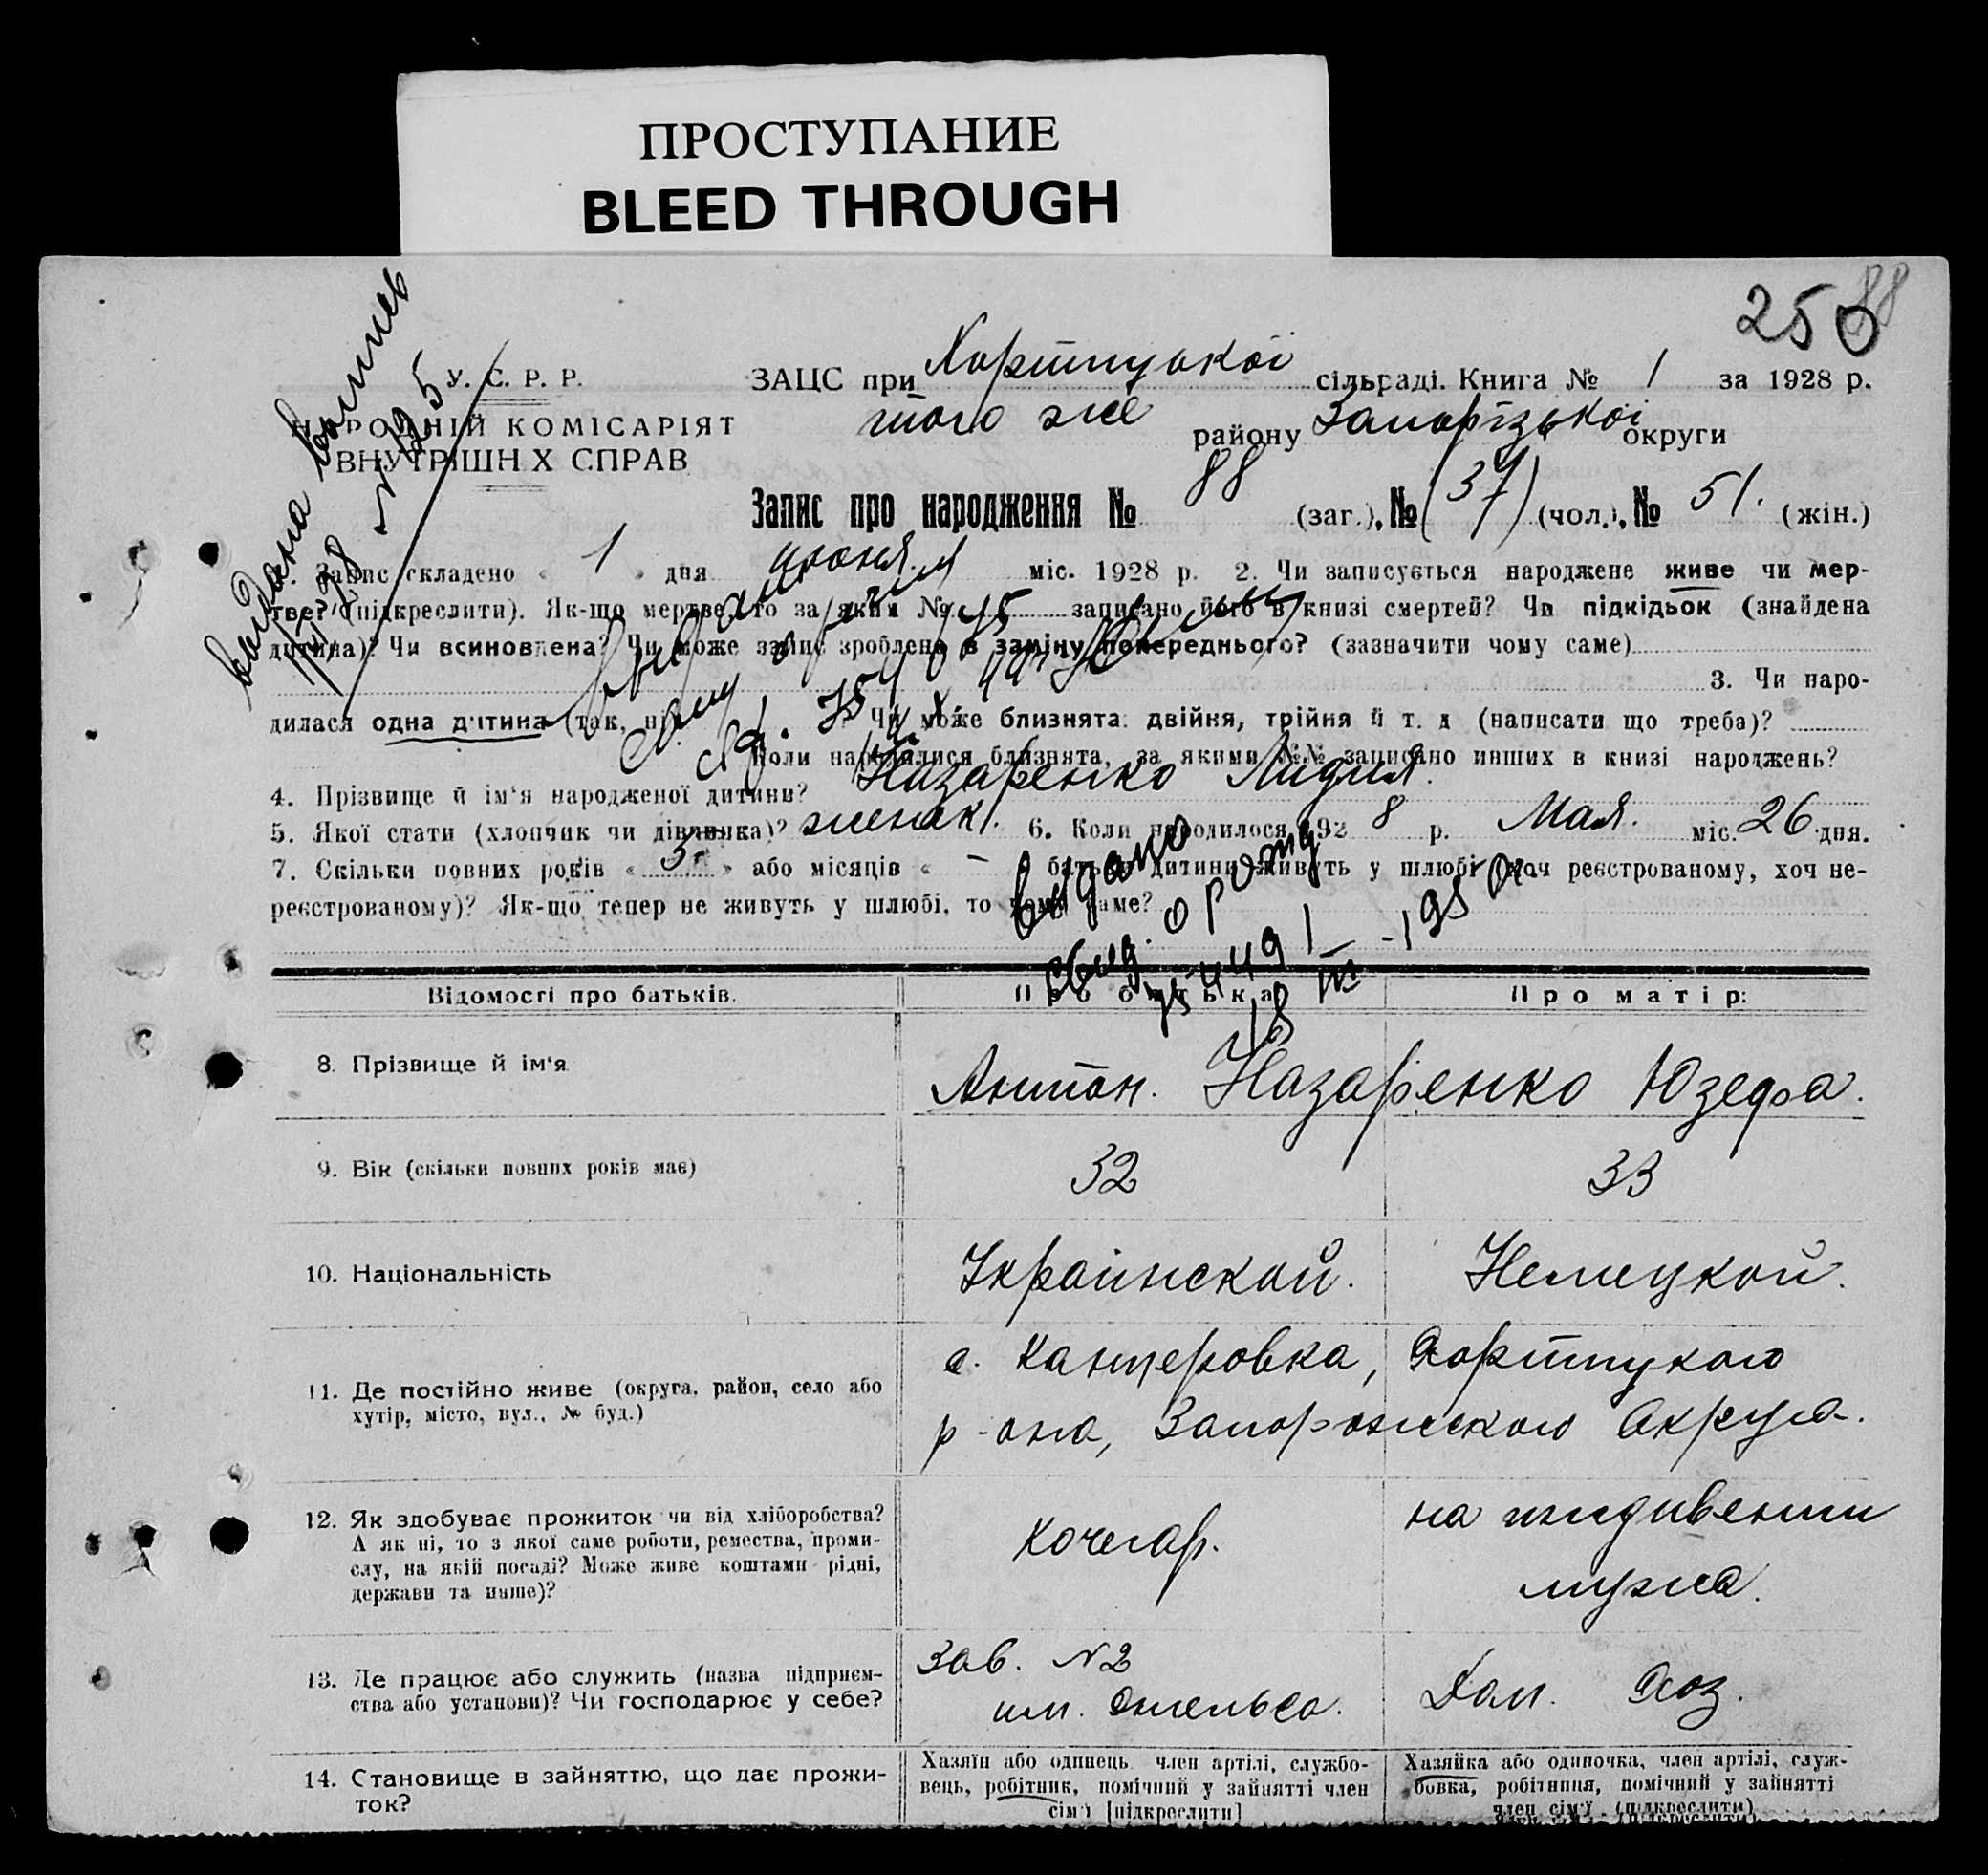 ПРОСТУПАНИЕ
BLEED THROUGH
25 88
У. С. Р. Р.
НАРОДНІЙ КОМІСАРІЯТ
ВНУТРІШН Х СПРАВ
ЗАЦС при Хортицької сільраді. Книга № 1 за 1928 р.
того же району Запорізької округи
Запис про народження № 88 (заг.), № (37) (чол.), № 51. (жін.)
выдана выпись
N 125
1. Запис складено « 1 » дня июня. міс. 1928 р. 2. Чи записується народжене живе чи мер-
тве? (підкреслити). Як-що мертве, то за яким № записано його в книзі смертей? Чи підкідьок (знайдена
дитина)? Чи всиновлена? Чи може запис зроблено в заміну попереднього? (зазначити чому саме)
3. Чи наро-
дилася одна дитина (так, ні)? Чи може близнята: двійня, трійня й т. д (написати що треба)?
Коли народилися близнята, за якими №№ записано инших в книзі народжень?
4. Прізвище й ім‘я народженої дитини? Назаренко Лидия.
5. Якої стати (хлопчик чи дівчинка)? женск. 6. Коли народилося 1928 р. Мая. міс. 26 дня.
7. Скільки повних років « 3 » або місяців « – батьки дитини живуть у шлюбі (хоч реєстрованому, хоч не-
реєстрованому)? Як-що тепер не живуть у шлюбі, то чому саме?
выдано
свид. о рожд
Відомості про батьків.
Про батька
Про матір:
8. Прізвище й ім‘я
Антон. Назаренко Юзефа.
9. Вік (скільки повних років має)
32
33
10. Національність
Украинской.
Немецкой.
11. Де постійно живе (округа, район, село або
хутір, місто, вул., № буд.)
с. Канцеровка, Хортицкого
р-она, Запорожского Округа.
12. Як здобуває прожиток чи від хліборобства?
А як ні, то з якої саме роботи, ремества, проми-
слу, на якій посаді? Може живе коштами рідні,
держави та инше)?
Кочегар.
на иждивении
мужа.
13. Де працює або служить (назва підприєм-
ства або установи)? Чи господарює у себе?
Зав. N2
им. Энгельса.
Дом. Хоз.
14. Становище в зайняттю, що дає прожи-
ток?
Хазяїн або одинець член артілі, службо-
вець, робітник, помічний у зайнятті член
сім‘ї [підкреслити]
Хазяйка або одиночка, член артілі, служ-
бовка, робітниця, помічний у зайнятті
член сім‘ї. (підкреслити)